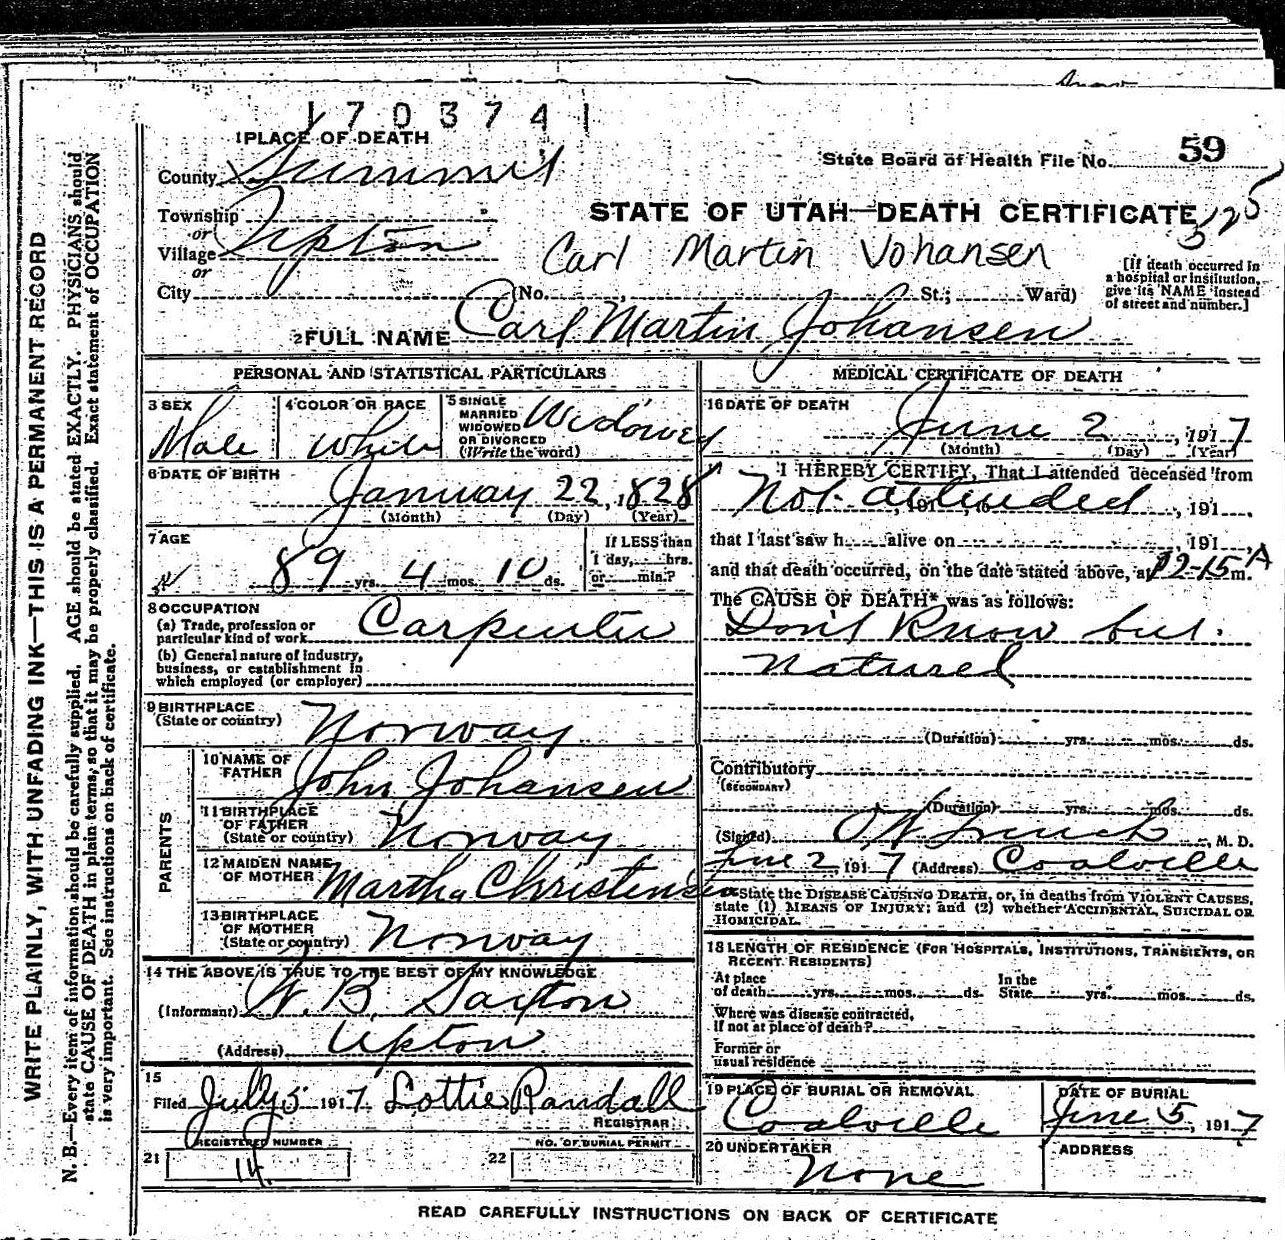 1703741
1 PLACE OF DEATH
County Summit
State Board of Health File No. 59
Township
or
Village Upton
or
STATE OF UTAH—DEATH CERTIFICATE
325
Carl Martin Johansen
City (No. , St.; Ward)
[If death occurred in
a hospital or institution,
give its NAME instead
of street and number.]
2 FULL NAME Carl Martin Johansen
PERSONAL AND STATISTICAL PARTICULARS
3 SEX
Male
4 COLOR OR RACE
White
5 SINGLE
MARRIED
WIDOWED
OR DIVORCED
(Write the word)
Widowed
6 DATE OF BIRTH
January 22, 1828
(Month) (Day) (Year)
7 AGE
89 yrs. 4 mos. 10 ds.
If LESS than
1 day, hrs.
or min.?
8 OCCUPATION
(a) Trade, profession or
particular kind of work Carpenter
(b) General nature of industry,
business, or establishment in
which employed (or employer)
9 BIRTHPLACE
(State or country) Norway
PARENTS
10 NAME OF
FATHER John Johansen
11 BIRTHPLACE
OF FATHER
(State or country) Norway
12 MAIDEN NAME
OF MOTHER Martha Christensen
13 BIRTHPLACE
OF MOTHER
(State or country) Norway
14 THE ABOVE IS TRUE TO THE BEST OF MY KNOWLEDGE
(Informant) W. B. Saxton
(Address) Upton
15
Filed July 5 1917 Lottie Randall
REGISTRAR
REGISTERED NUMBER
21 14
NO. OF BURIAL PERMIT
22
MEDICAL CERTIFICATE OF DEATH
16 DATE OF DEATH
June 2, 1917
(Month) (Day) (Year)
I HEREBY CERTIFY, That I attended deceased from
Not attended, 191 , to , 191 .
that I last saw h alive on , 191 ,
and that death occurred, on the date stated above, at 12-15 A m.
The CAUSE OF DEATH* was as follows:
Don't Know but
natured
(Duration) yrs. mos. ds.
Contributory
(SECONDARY)
(Duration) yrs. mos. ds.
(Signed) , M. D.
June 2, 1917 (Address) Coalville
*State the DISEASE CAUSING DEATH, or, in deaths from VIOLENT CAUSES,
state (1) MEANS OF INJURY; and (2) whether ACCIDENTAL, SUICIDAL OR
HOMICIDAL.
18 LENGTH OF RESIDENCE (FOR HOSPITALS, INSTITUTIONS, TRANSIENTS, OR
RECENT RESIDENTS)
At place
of death yrs. mos. ds.
In the
State yrs. mos. ds.
Where was disease contracted,
If not at place of death?
Former or
usual residence
19 PLACE OF BURIAL OR REMOVAL
Coalville
DATE OF BURIAL
June 5, 1917
20 UNDERTAKER
None
ADDRESS
READ CAREFULLY INSTRUCTIONS ON BACK OF CERTIFICATE
WRITE PLAINLY, WITH UNFADING INK—THIS IS A PERMANENT RECORD
N. B.—Every item of information should be carefully supplied. AGE should be stated EXACTLY. PHYSICIANS should
state CAUSE OF DEATH in plain terms, so that it may be properly classified. Exact statement of OCCUPATION
is very important. See instructions on back of certificate.